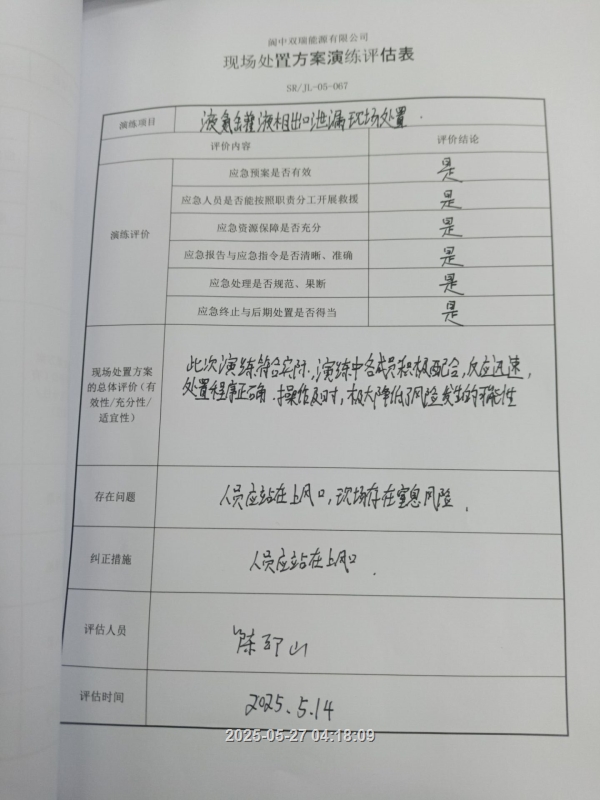 阆中双瑞能源有限公司
现场处置方案演练评估表
SR/JL-05-067
演练项目
液氮储罐液相出口泄漏现场处置.
评价内容
评价结论
演练评价
应急预案是否有效
是
应急人员是否能按照职责分工开展救援
是
应急资源保障是否充分
是
应急报告与应急指令是否清晰、准确
是
应急处理是否规范、果断
是
应急终止与后期处置是否得当
是
现场处置方案
的总体评价(有
效性/充分性/
适宜性)
此次演练符合实际.演练中各成员积极配合,反应迅速,
处置程序正确.操作及时,极大降低了风险发生的可能性
存在问题
人员应站在上风口,现场存在窒息风险.
纠正措施
人员应站在上风口.
评估人员
陈 山
评估时间
2025.5.14
2025-05-27 04:18:09